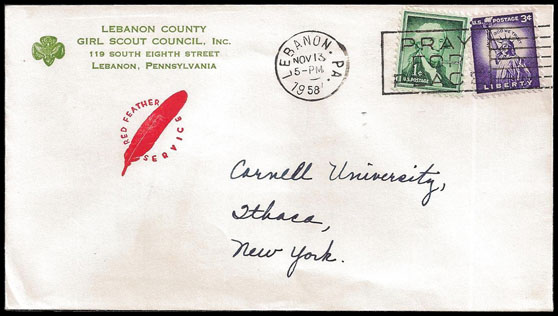 LEBANON COUNTY
GIRL SCOUT COUNCIL, Inc.
119 SOUTH EIGHTH STREET
LEBANON, PENNSYLVANIA
RED FEATHER
SERVICE
LEBANON, PA.
NOV 13
5-PM
1958
PRAY
FOR
U.S. POSTAGE
U.S. POSTAGE 3¢
LIBERTY
Cornell University,
Ithaca,
New York.